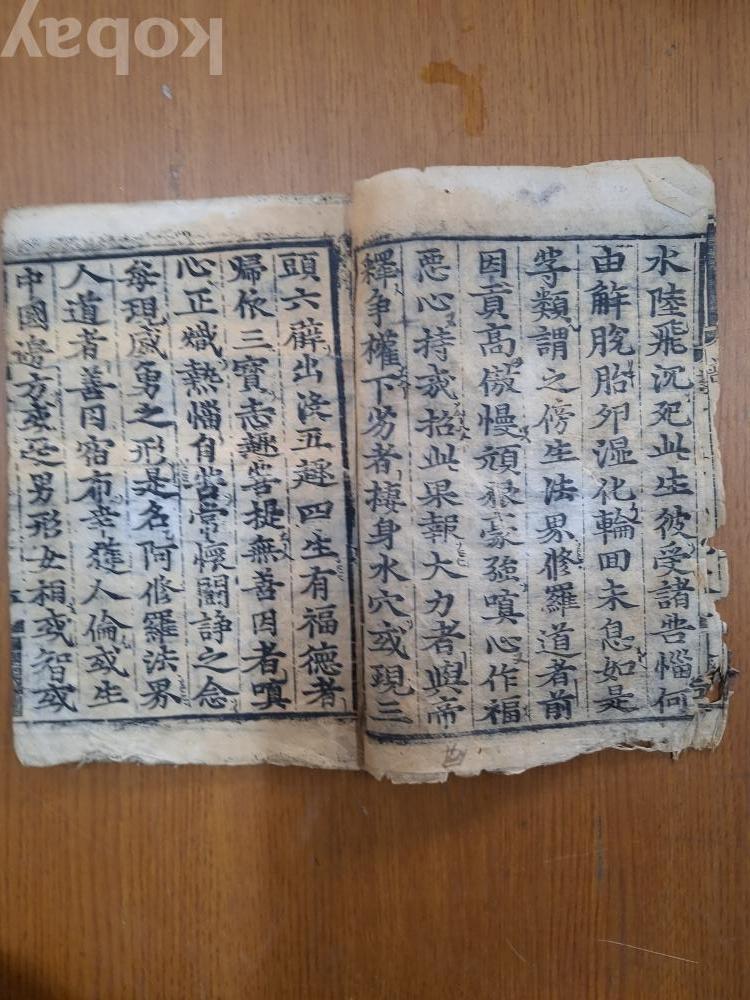 水陸飛沉死此生彼受諸苦惱何
由解脫胎卵湿化輪回未息如是
等類謂之傍生法界修羅道者前
因貢高傲慢頑狠豪強嗔心作福
惡心持戒招此果報大力者與帝
釋爭權下劣者棲身水穴或現三
頭六臂出沒五趣四生有福德者
歸依三寶志趣菩提無善因者嗔
心正熾熱惱自苦常懷鬪諍之念
每現威勇之形是名阿修羅法界
人道者善因宿布幸獲人倫或生
中國邊方或是男形女相或智或
kobay